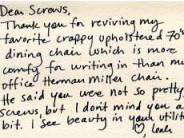 Dear Screws,
Thank you for reviving my
favorite crappy upholstered 70's
dining chair which is more
comfy for writing in than my
office Herman Miller chair.
He said you were not so pretty
screws, but I don't mind you a
bit. I see beauty in your utility
♡